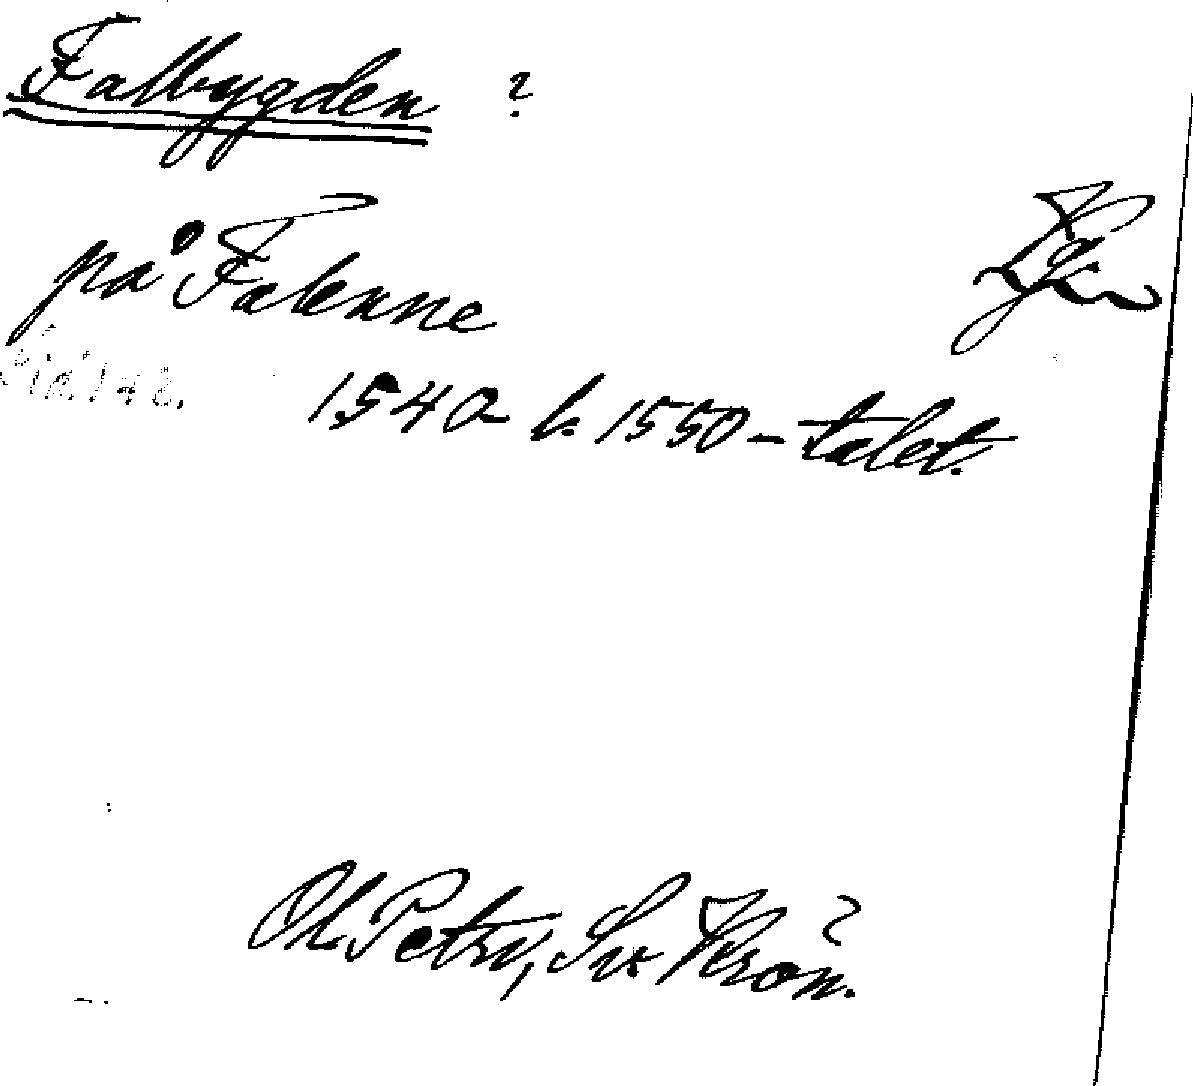 Falbygden ?
på Falenne
Sid. 148.
1540 l. 1550-talet.
Ol. Petri, Sv. Krön.